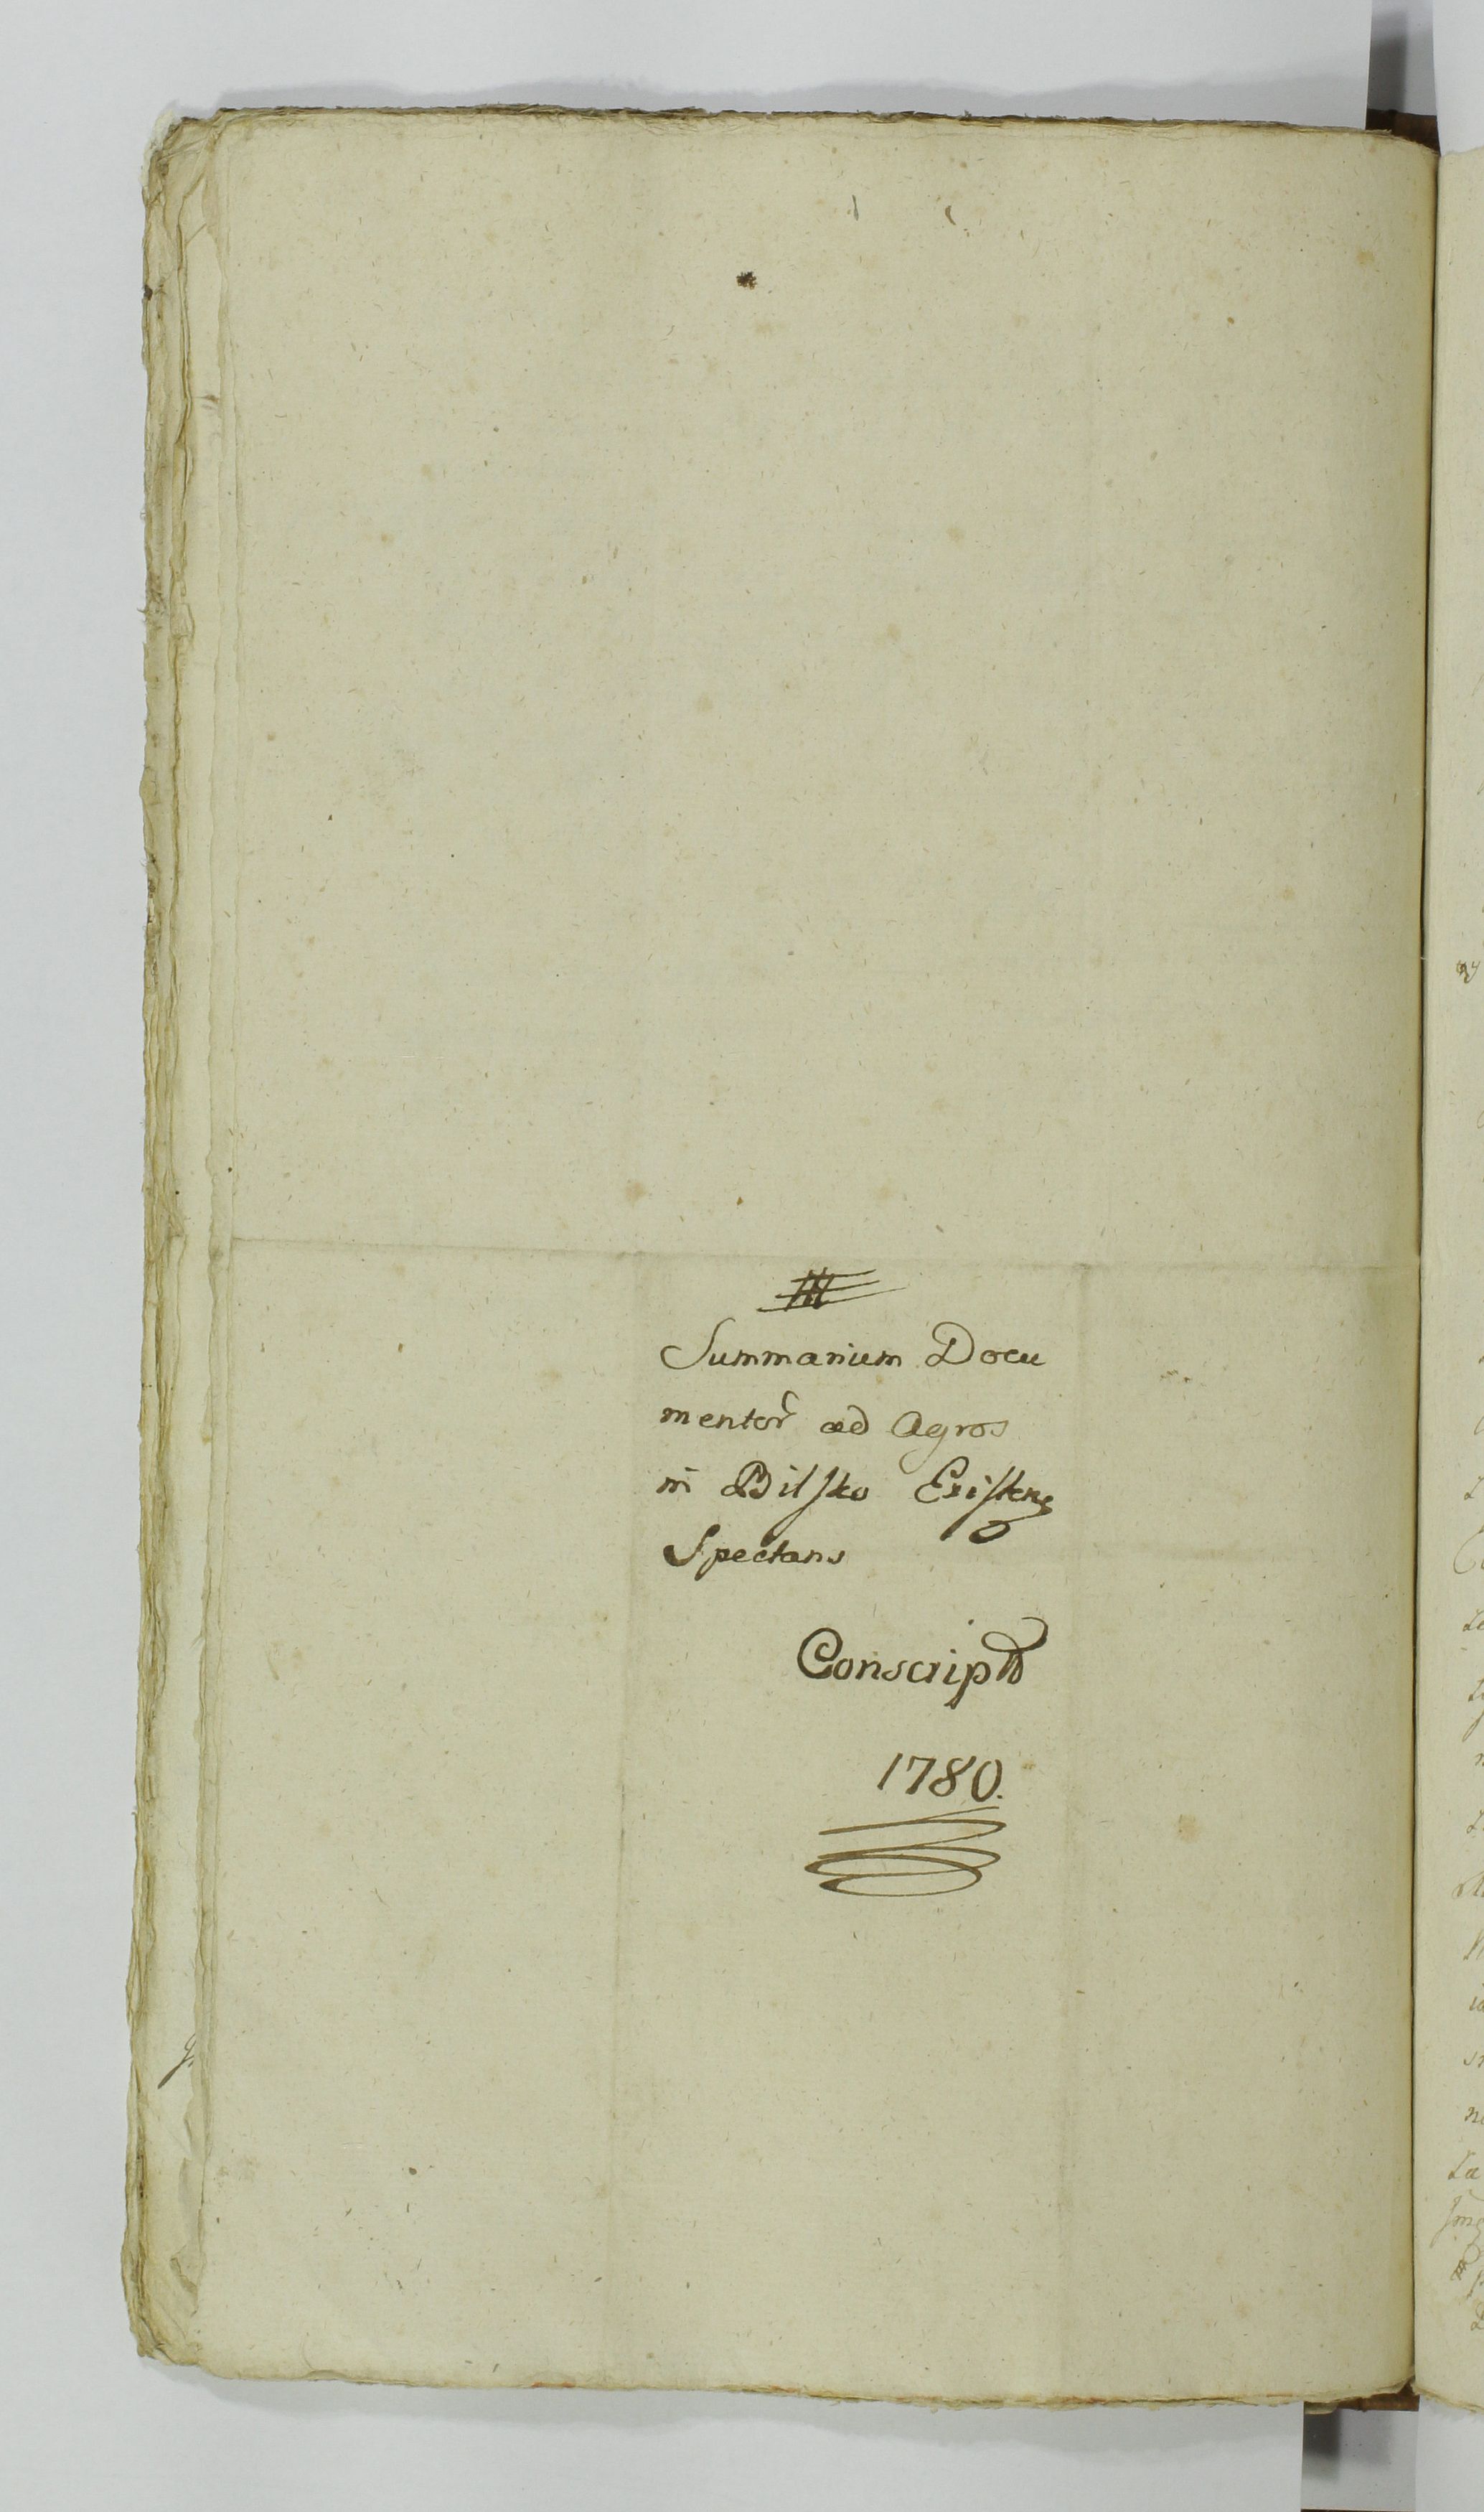 Summarium Docu
mentor̃ ad Agros
in Bilsko Existens
Spectans
Conscript
1780.